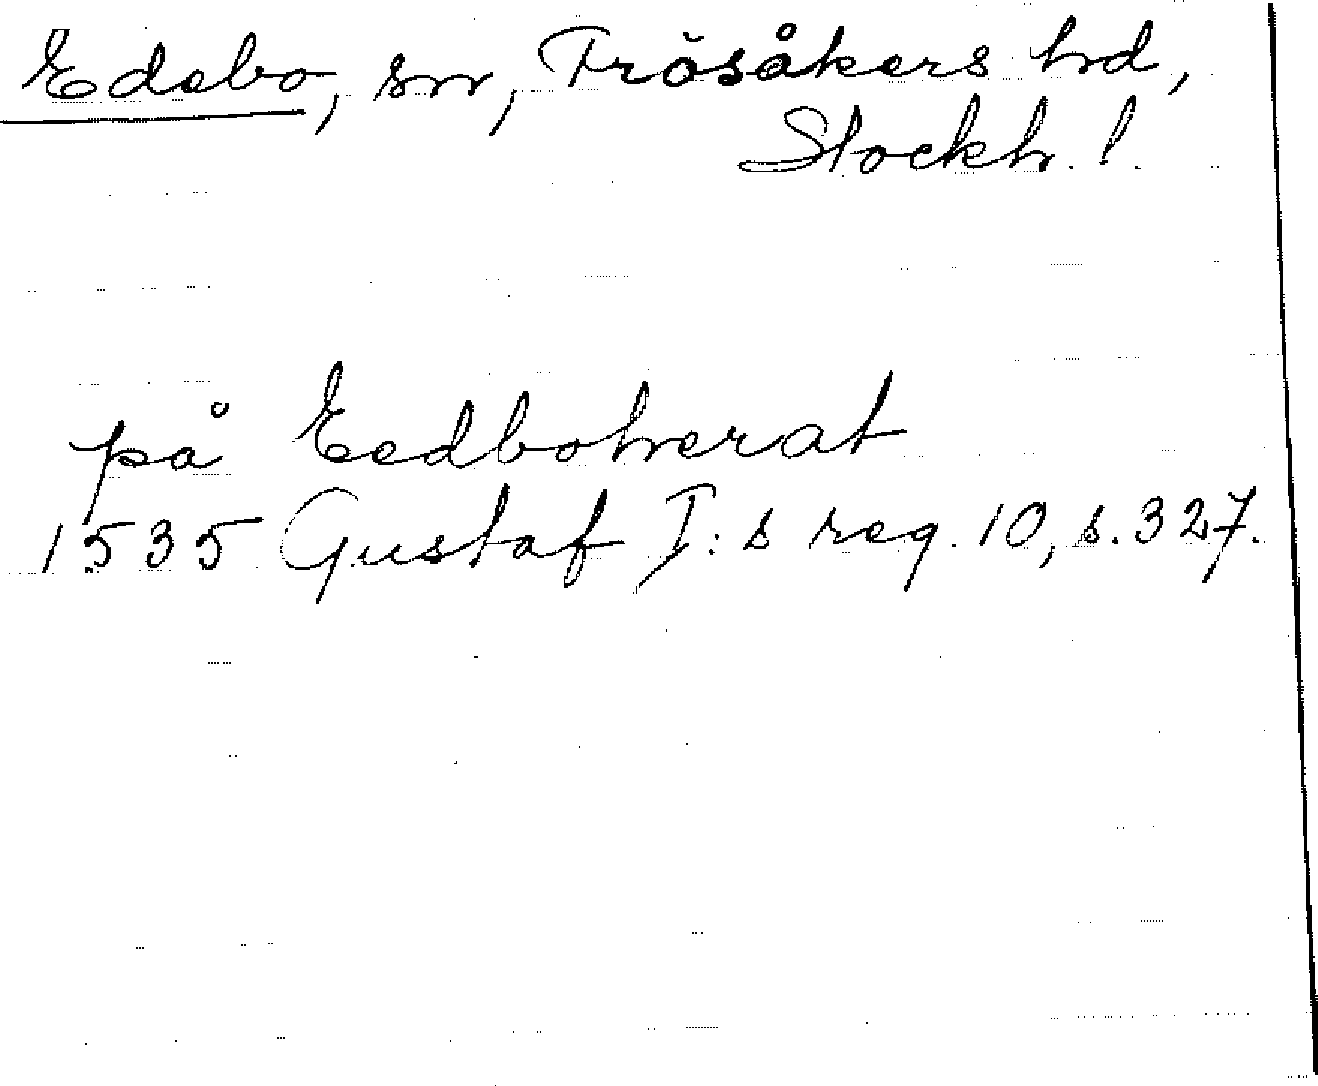 Edebo, sn, Frösåkers hd,
Stockh. l.
på Eedboherat
1535 Gustaf I:s reg. 10, s. 327.